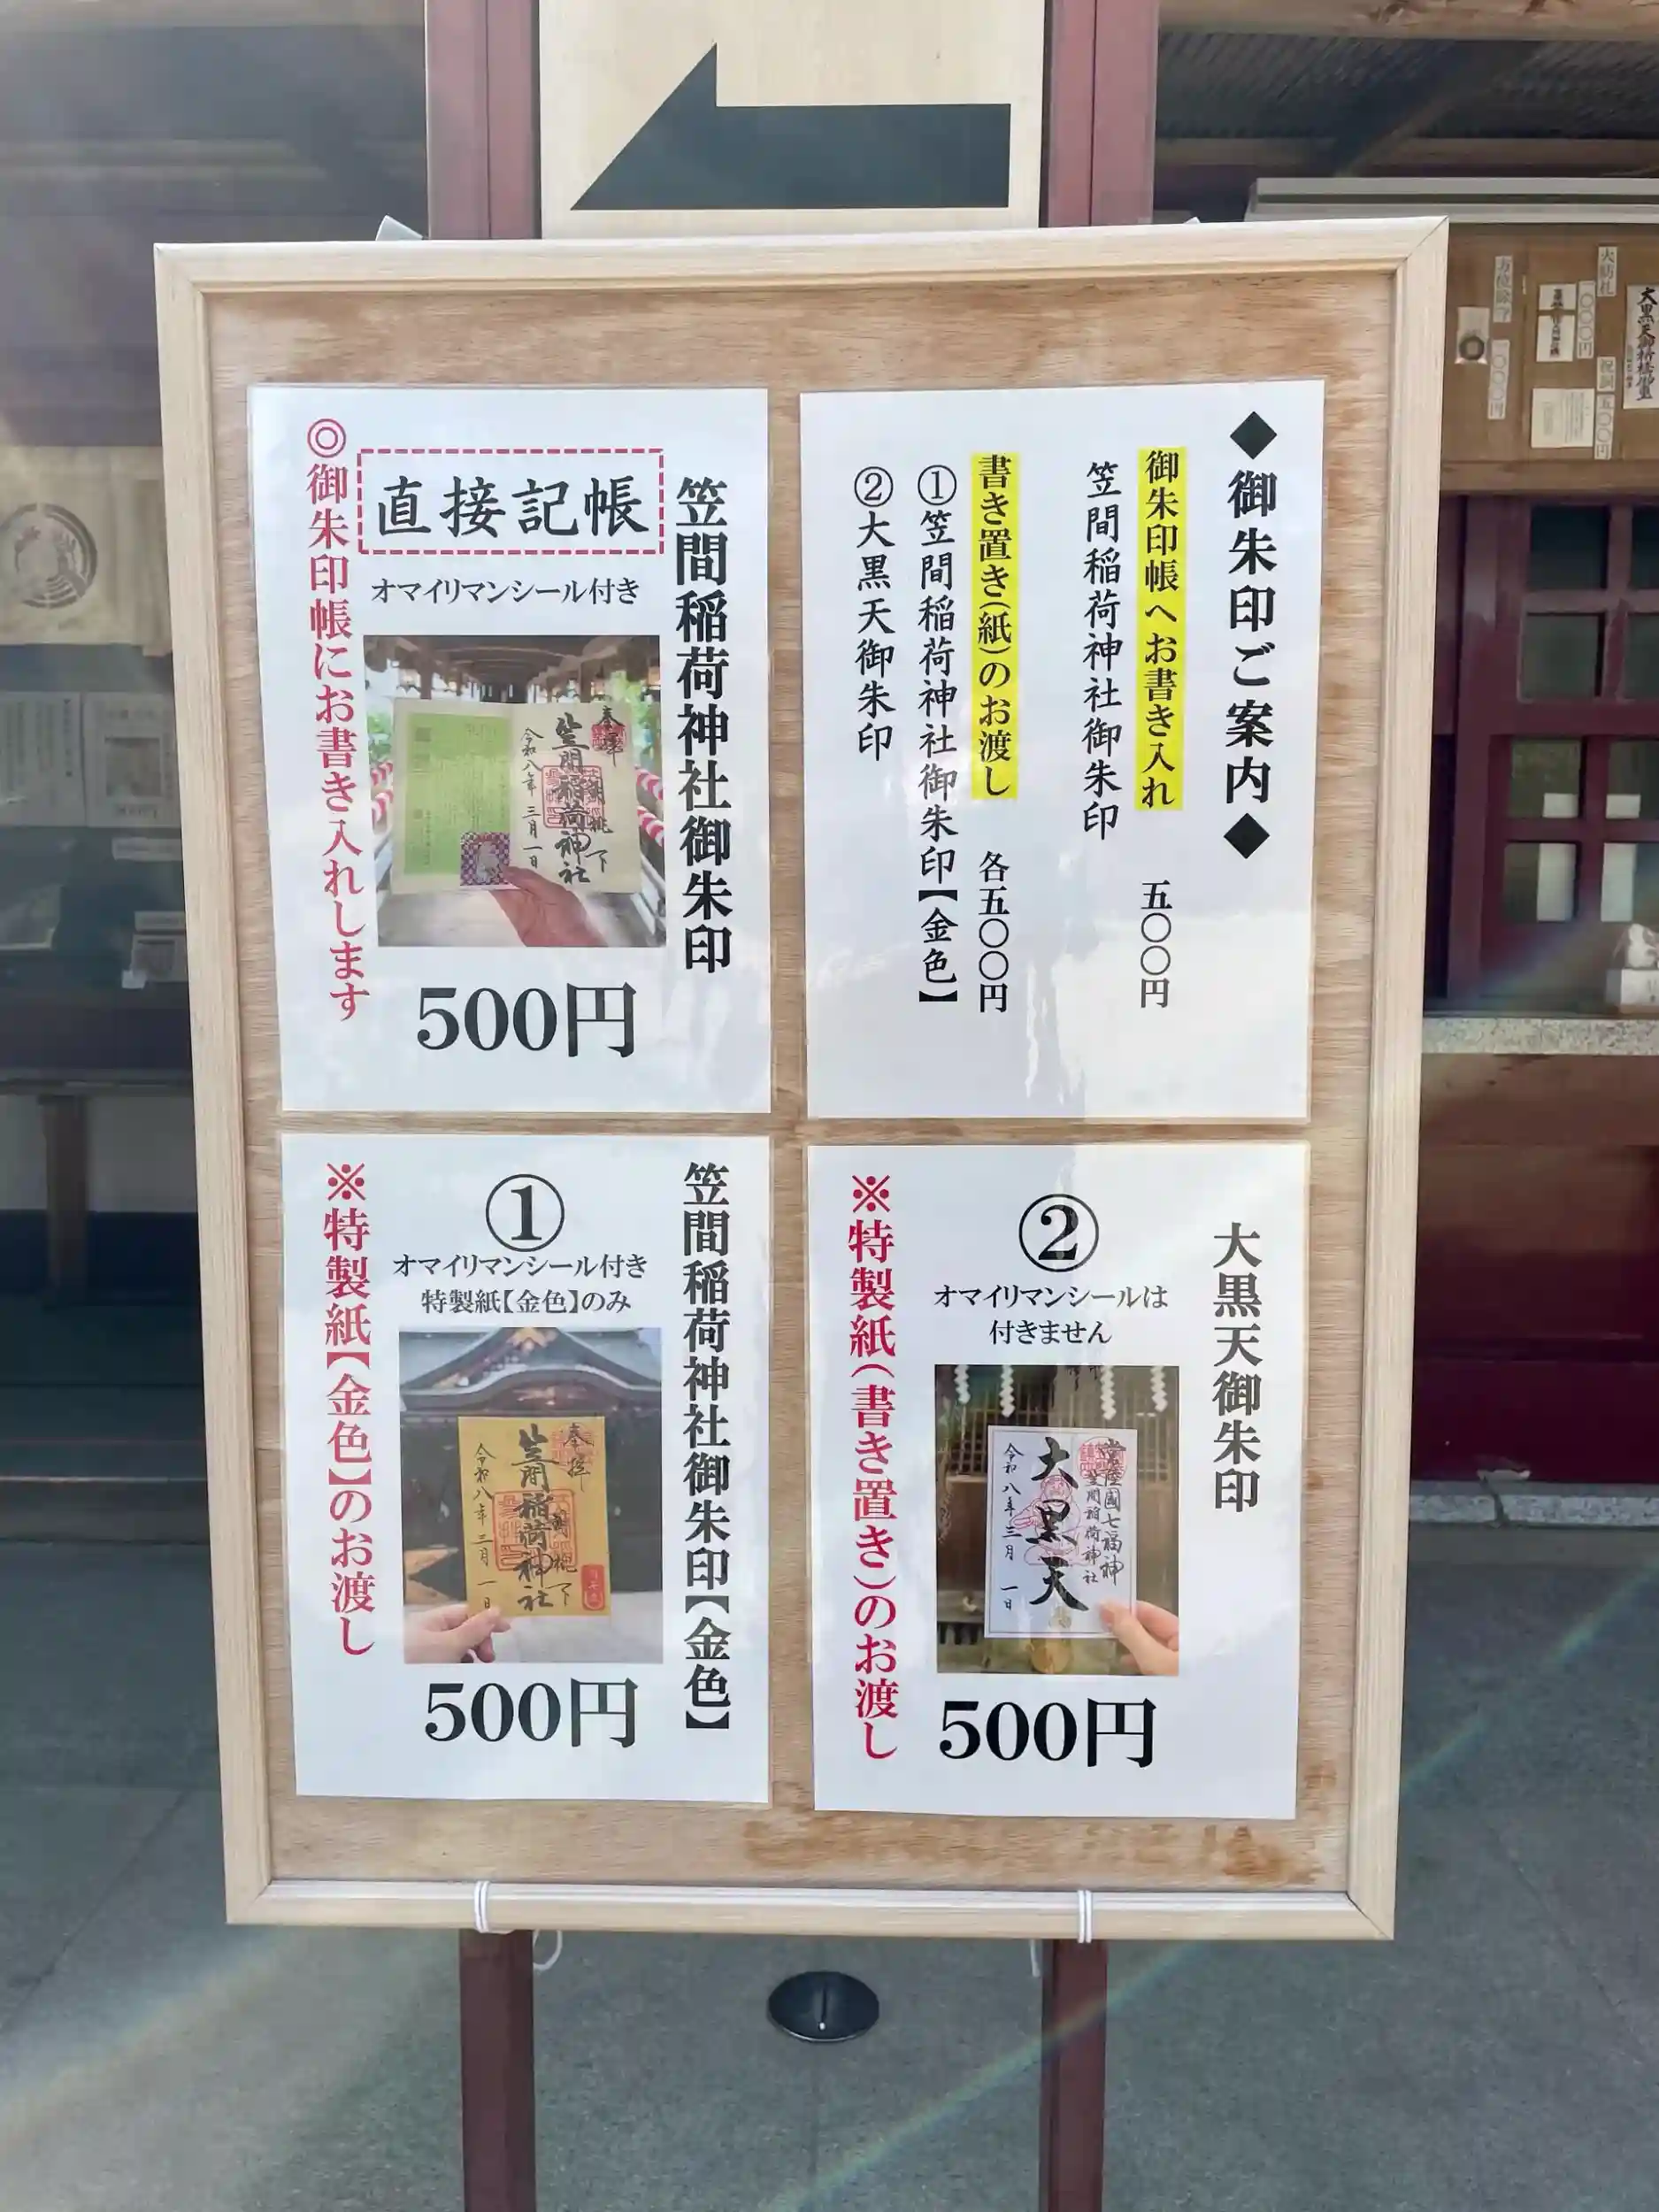 ◆御朱印ご案内◆
御朱印帳へお書き入れ 五〇〇円
笠間稲荷神社御朱印
書き置き(紙)のお渡し 各五〇〇円
①笠間稲荷神社御朱印【金色】
②大黒天御朱印
笠間稲荷神社御朱印
直接記帳
オマイリマンシール付き
奉拝
笠間稲荷神社
令和八年三月一日
500円
◎御朱印帳にお書き入れします
笠間稲荷神社御朱印【金色】
①
オマイリマンシール付き
特製紙【金色】のみ
奉拝
笠間稲荷神社
令和八年三月一日
500円
※特製紙【金色】のお渡し
大黒天御朱印
②
オマイリマンシールは
付きません
常陸國七福神
笠間稲荷神社
大黒天
令和八年三月一日
500円
※特製紙(書き置き)のお渡し